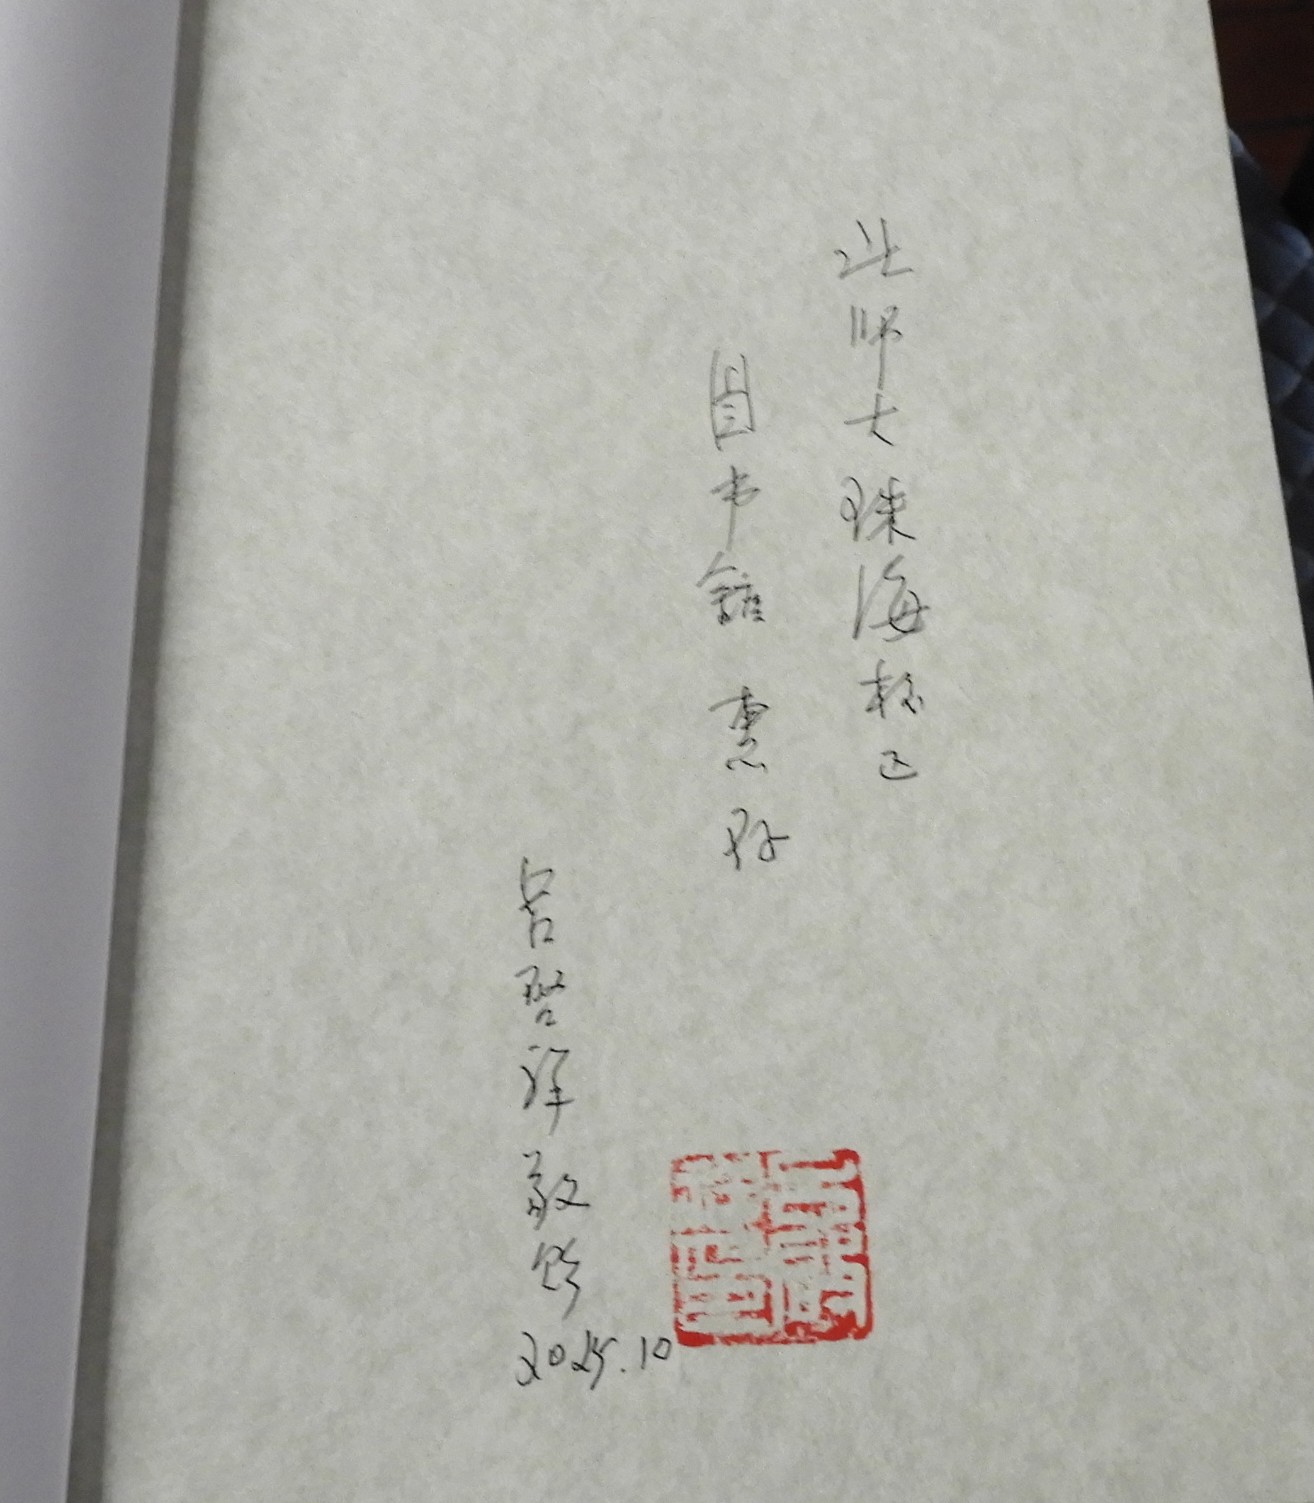 北师大珠海校区
图书馆 惠存
吕哲译敬贻
2025.10